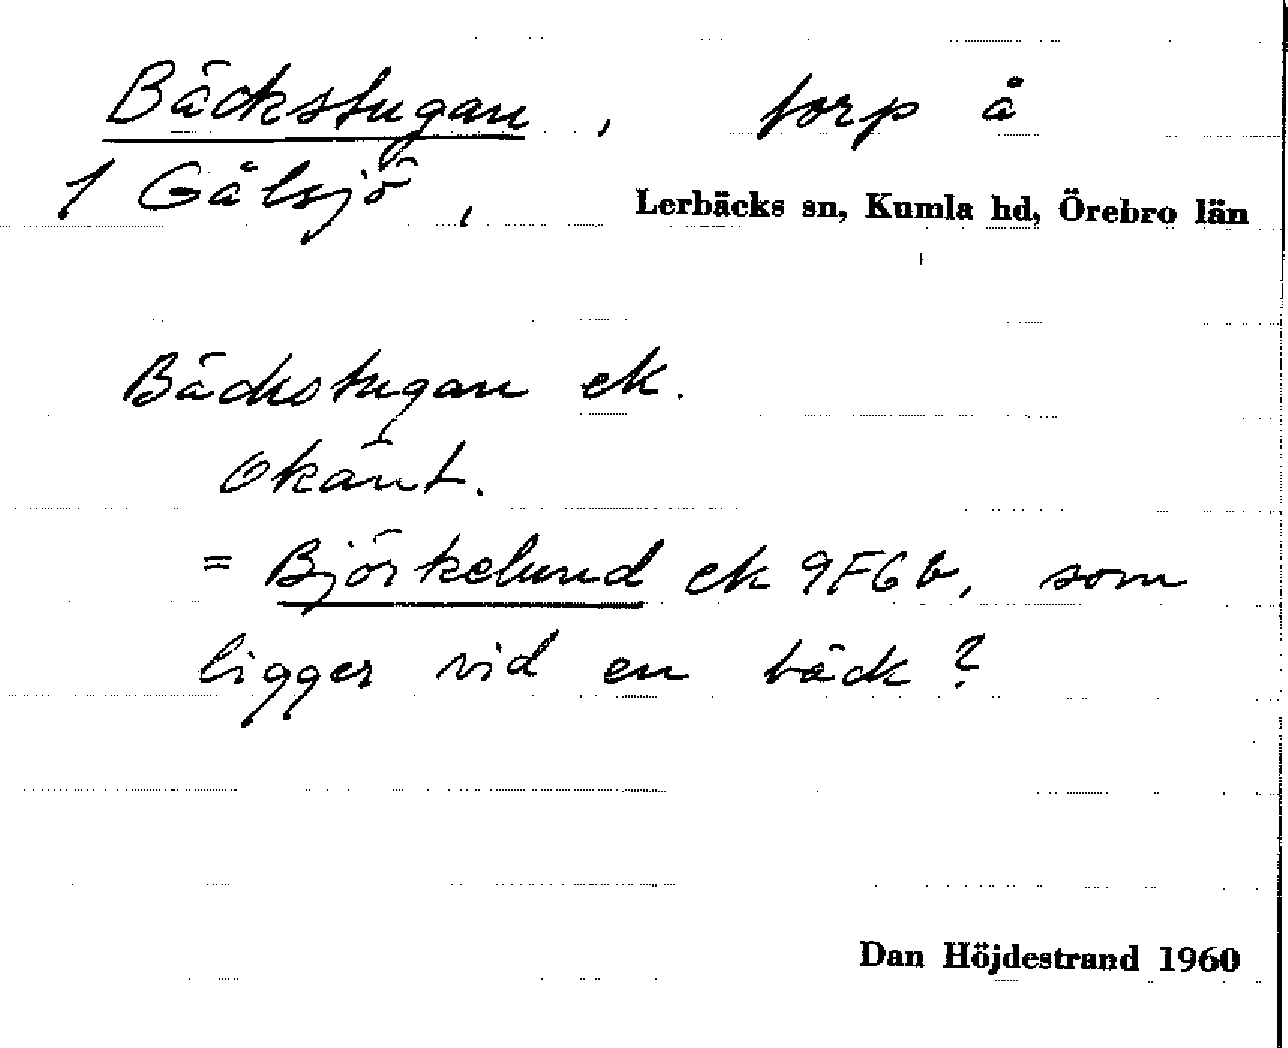 Bäckstugan, torp å
1 Gålsjö, Lerbäcks sn, Kumla hd, Örebro län
Bäckstugan ek.
Okänt.
= Björkelund ek 9F6b, som
ligger vid en bäck?
Dan Höjdestrand 1960